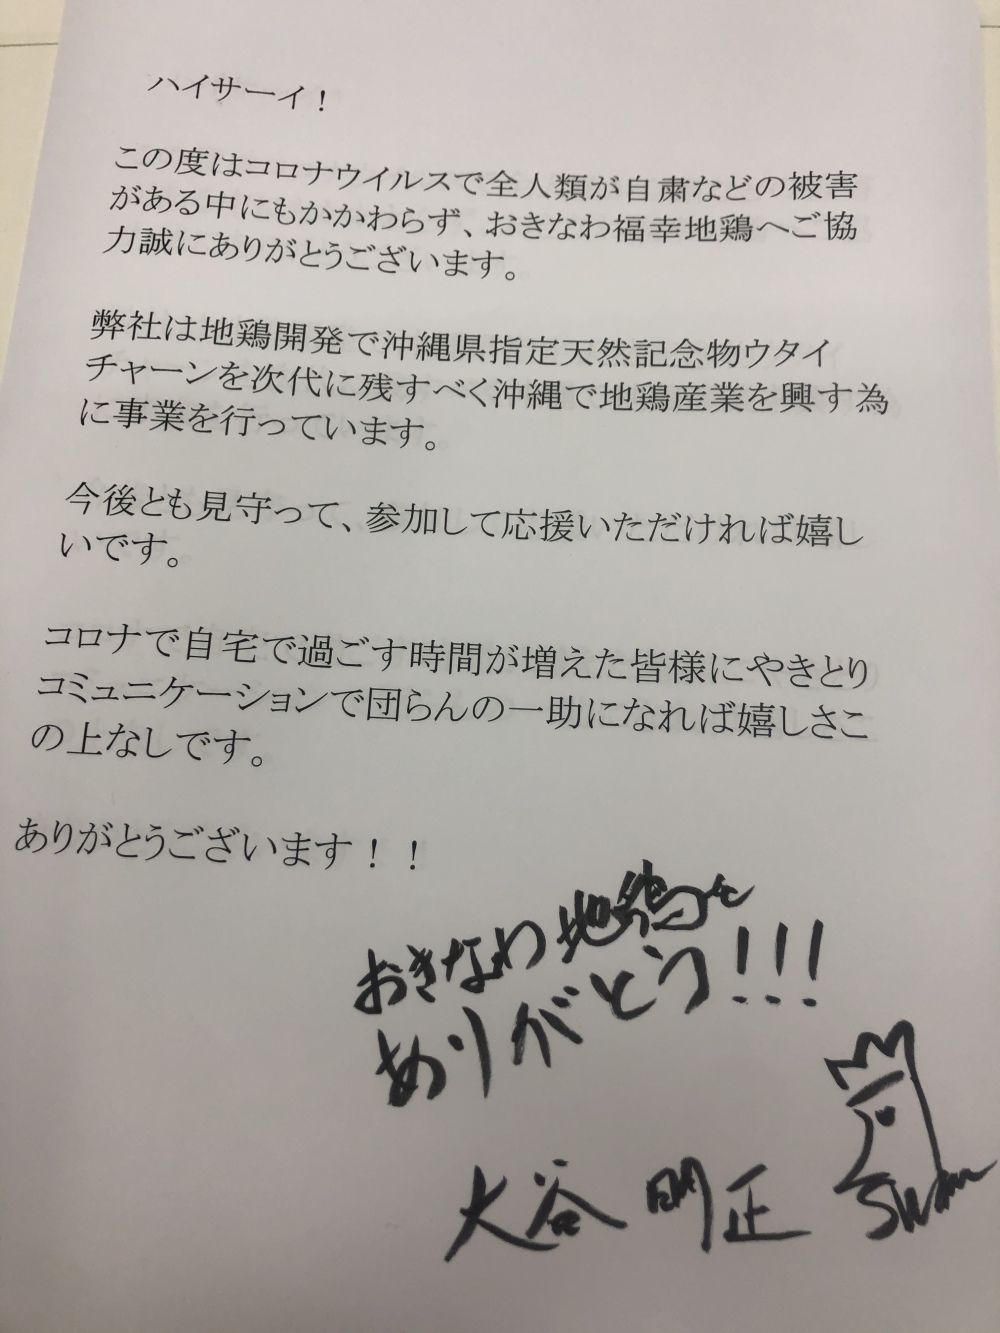 ハイサーイ！
この度はコロナウイルスで全人類が自粛などの被害
がある中にもかかわらず、おきなわ福幸地鶏へご協
力誠にありがとうございます。
弊社は地鶏開発で沖縄県指定天然記念物ウタイ
チャーンを次代に残すべく沖縄で地鶏産業を興す為
に事業を行っています。
今後とも見守って、参加して応援いただければ嬉し
いです。
コロナで自宅で過ごす時間が増えた皆様にやきとり
コミュニケーションで団らんの一助になれば嬉しさこ
の上なしです。
ありがとうございます！！
おきなわ地鶏を
ありがとう!!!
大谷明正